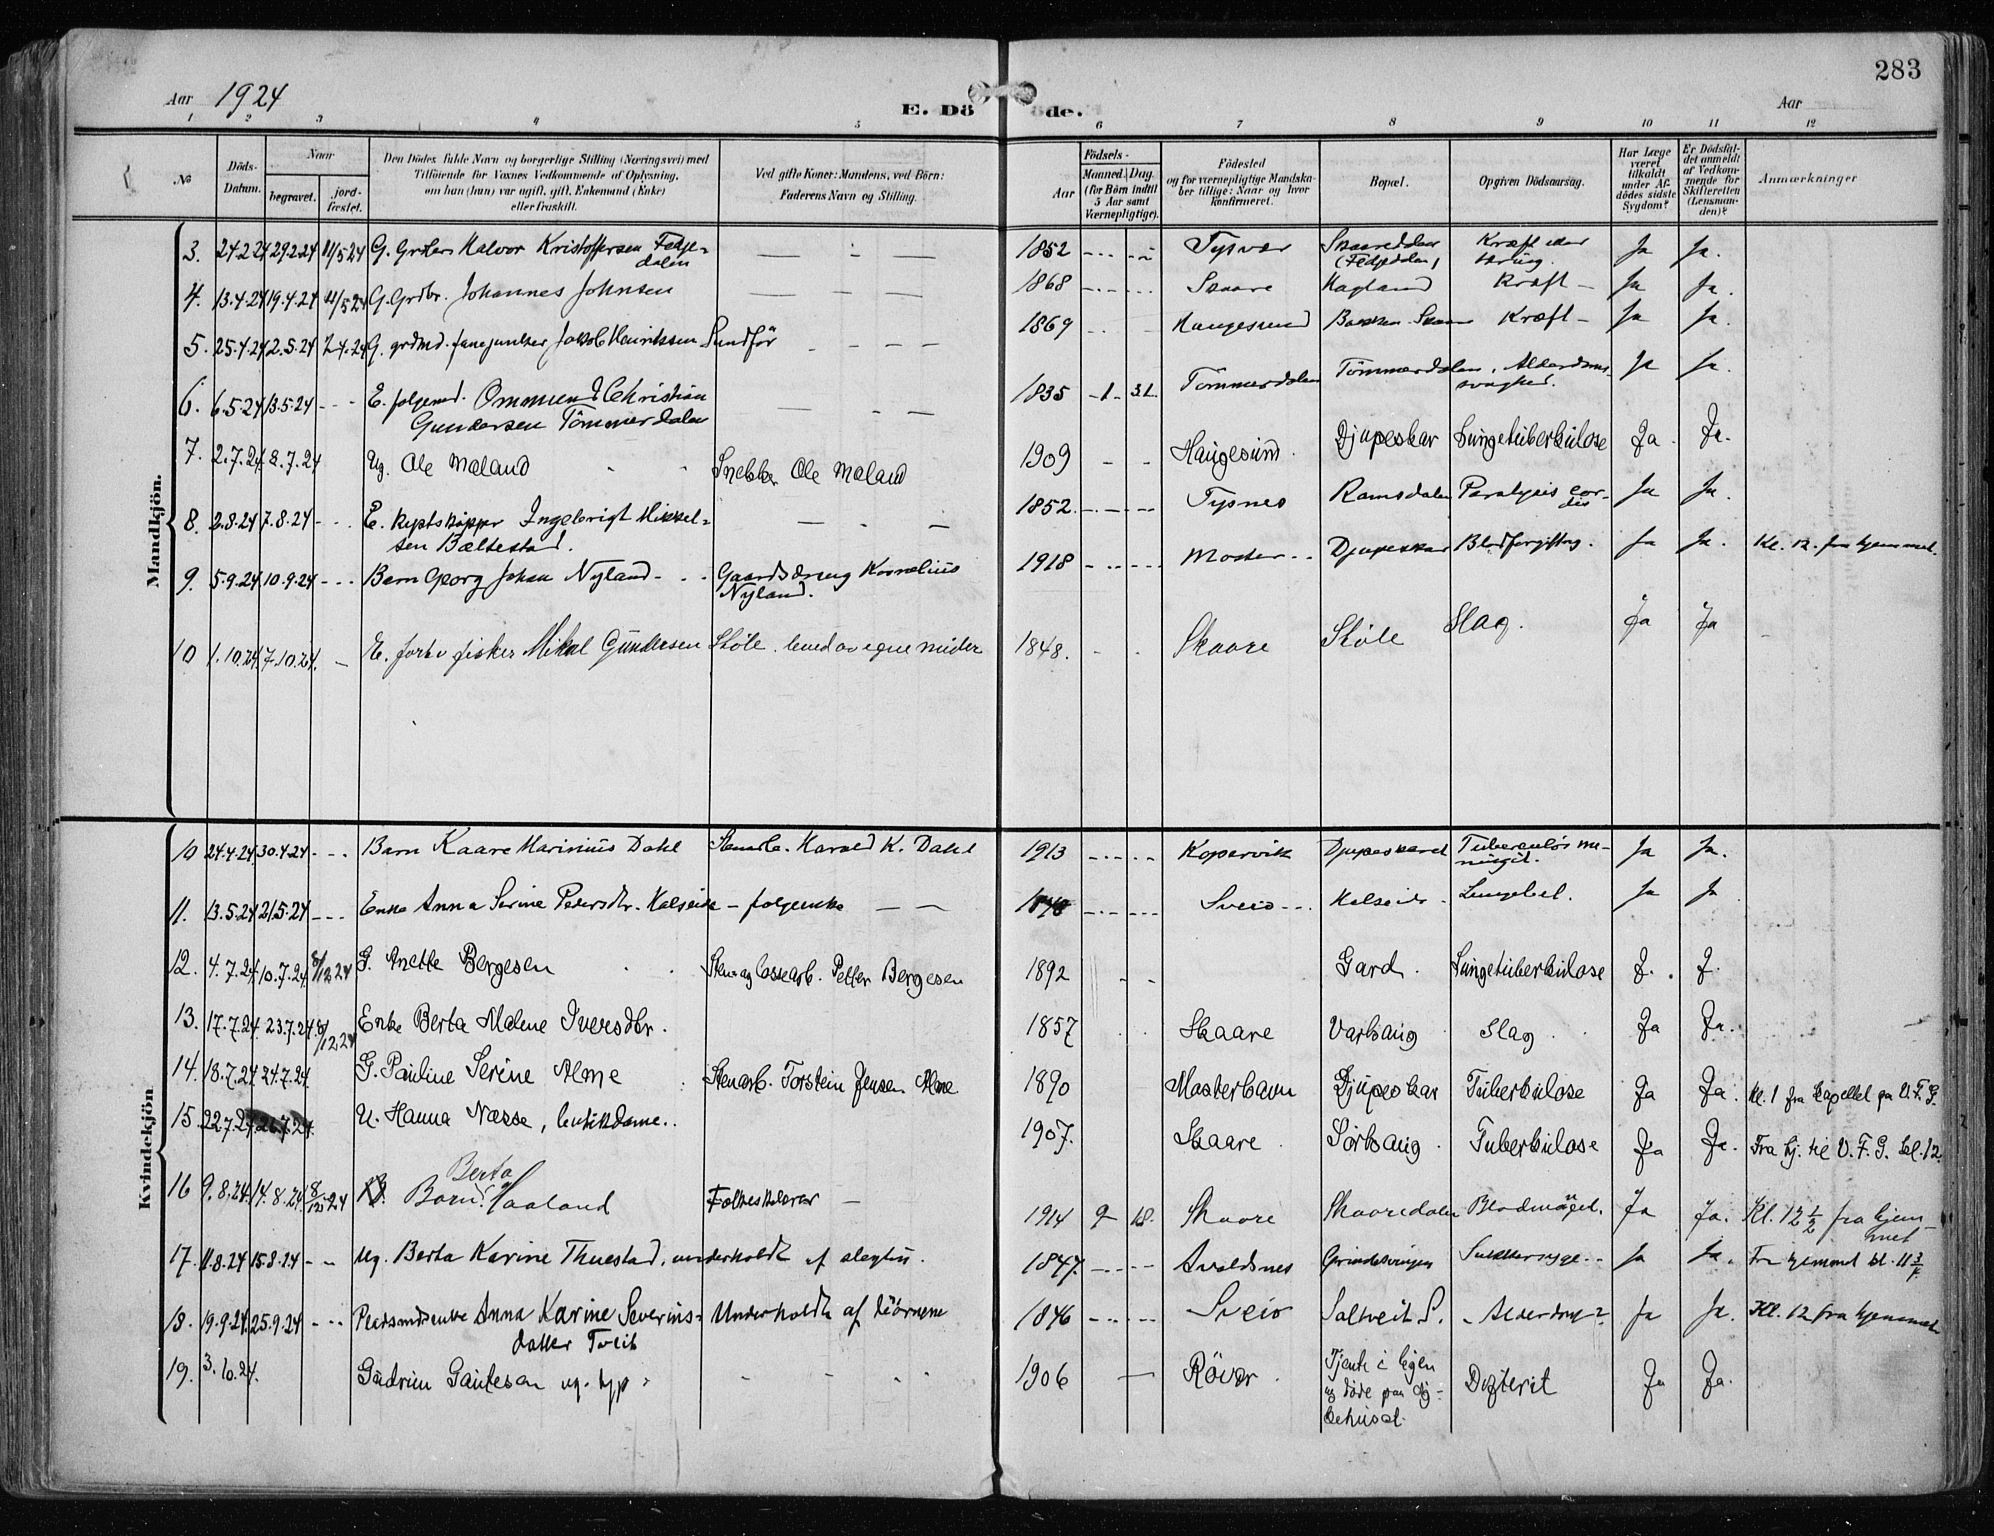 283
Aar 1924
E. Döde.
Aar
1 2 3 4 5 6 7 8 9 10 11 12
№
Döds-Datum.
Naar
begravet.
jord-fæstet.
Den Dödes fulde Navn og borgerlige Stilling (Næringsvei) med
Tilföiende for Voxnes Vedkommende af Oplysning,
om han (hun) var ugift, gift, Enkemand (Enke)
eller fraskilt.
Ved gifte Koner: Mandens, ved Börn:
Faderens Navn og Stilling.
Födsels-
Aar
Maaned. Dag.
(for Börn indtil
5 Aar samt
Værnepligtige).
Födested
og for værnepligtige Mandska-
ber tillige: Naar og hvor
konfirmeret.
Bopæl.
Opgiven Dödsaarsag.
Har Læge
været
tilkaldt
under Af-
dödes sidste
Sygdom?
Er Dödsfal-
det anmeldt
af Vedkom-
mende for
Skifteretten
(Lensman-
den)?
Anmærkninger
Mandkjön.
3. 24.2.24 29.2.24 11/5 24 G. Grdbr. Halvor Kristoffersen 1852 Tysvær Ja Ja.
4. 13.4.24 19.4.24 11/5 24 G. Grdbr. Johannes Johnsen 1868 Skaare Hagland Kræft Ja Ja.
5. 25.4.24 2.5.24 G. Jakob Henriksen Sundför 1869 Haugesund Kræft Ja Ja.
6. 6.5.24 13.5.24 E. Ommund Christian
Gundersen Tömmerdalen 1835 1 31. Tömmerdalen Tömmerdalen, Alderdoms-
svaghed. Ja Ja.
7. 2.7.24 8.7.24 Ug. Ole Mæland Snekker Ole Mæland 1909 Haugesund. Djupeskar Lungetuberkulose Ja Ja.
8. 2.8.24 7.8.24 E. Ingebrigt Mikkel-
sen Bæltestad. 1852. Tysnes Ramsdalen Paralysis cor-
dis Ja Ja.
9. 5.9.24 10.9.24 Barn Georg Johan Nyland Gaardsdreng Kornelius
Nyland. 1918 Moster Djupeskar Blodforgiftng. Ja Ja. Kl. 12 fra hjemmet.
10 1.10.24 7.10.24. E. forhv fisker Mikal Gundersen Stöle. leved av egne midler 1848. Skaare Stöle Slag. Ja Ja
Kvindekjön
10 24.4.24 30.4.24 Barn Kaare Marinius Dahl Harald K. Dahl 1913 Kopervik Djupeskaret Ja Ja.
11. 13.5.24 21.5.24 Enke Anna Serine Pedersdtr. Sveio Ja Ja
12. 4.7.24 10.7.24 8/12 24 G. Anette Bergesen Petter Bergesen 1892 Gard. Lungetuberkulose J. J.
13. 17.7.24 23.7.24 8/12 24 Enke Berta Malene Iversdtr. 1857 Skaare Varhaug Slag Ja Ja.
14. 18.7.24 24.7.24 G. Pauline Serine Alme Stenarb. Torstein Jensen Alme 1890 Mosterhavn Djupeskar Tuberkulose Ja Ja. Kl. 1 fra kapellet paa V. F. G.
15. 22.7.24 26.7.24. U. Hanna Næsse, butikdame.. 1907. Skaare Sörhaug Tuberkulose Ja Ja. Fra hj. til V. F. G. kl. 12.
16 9.8.24. 14.8.24 8/12 24 Barn Berta Haaland Folkeskolerer 1914 9 18. Skaare Skaaredalen Blodmangel. Ja Ja. Kl. 12 1/2 fra hjem-
met
17. 11.8.24 15.8.24 Ug. Berta Karine Thuestad, underholdt af slegtn. 1847. Avaldsnes Grindesvingen Sukkersyge Ja Ja. Fra hjemmet kl. 11 3/4.
18. 19.9.24 25.9.24 Pladsmdsenke Anna Karine Severins-
datter Tveit Underholdt af börnene 1846 Sveio Saltveit S. Ja Ja. Kl. 12 fra hjemmet
19. 3.10.24. Gudrun Gautesen ug. 1906 Röver Tjente i byen
og döde paa sy-
kehuset. Difterit Ja Ja.